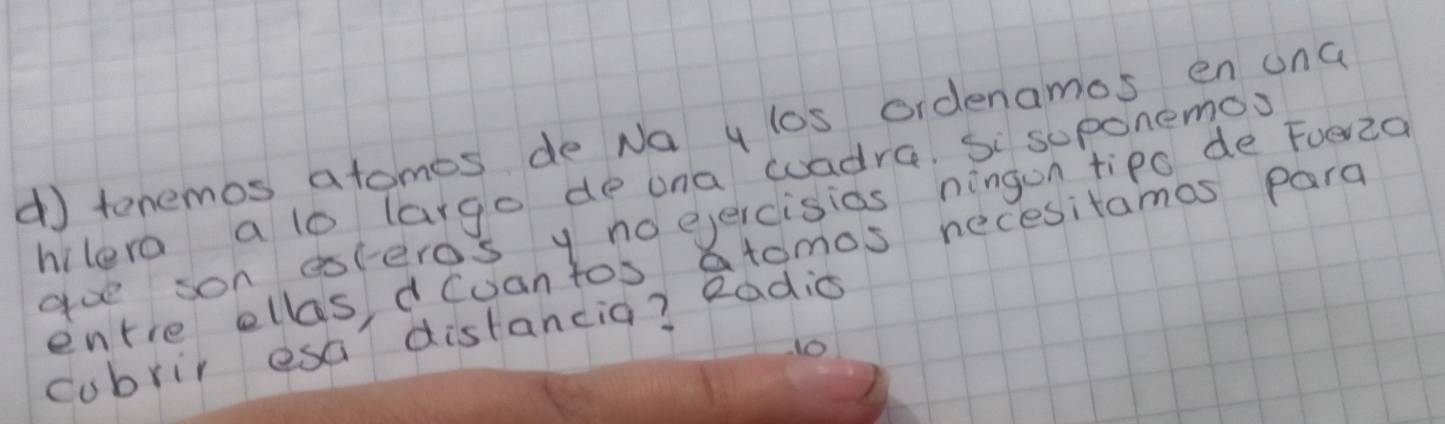 d) tenemos atomos de Na y los ordenamos en una
hilera a lo largo de una cuadra. Si suponemos
que son esferas y no ejercisias ningun tipo de Fuerza
entre ellas, d cuantos atomos necesitamos para
cubrir esa distancia? Radio
10